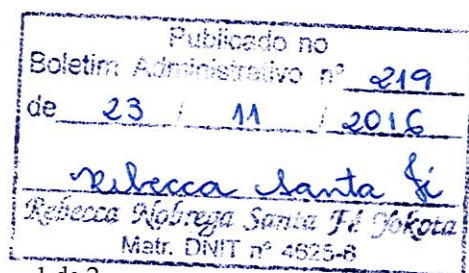 Publicado no
Boletim Administrativo nº 219
de 23 / 11 / 2016
Rebecca Santa Fé
Rebecca Nobrega Santa Fé Yokota
Matr. DNIT nº 4625-6
1 de 2